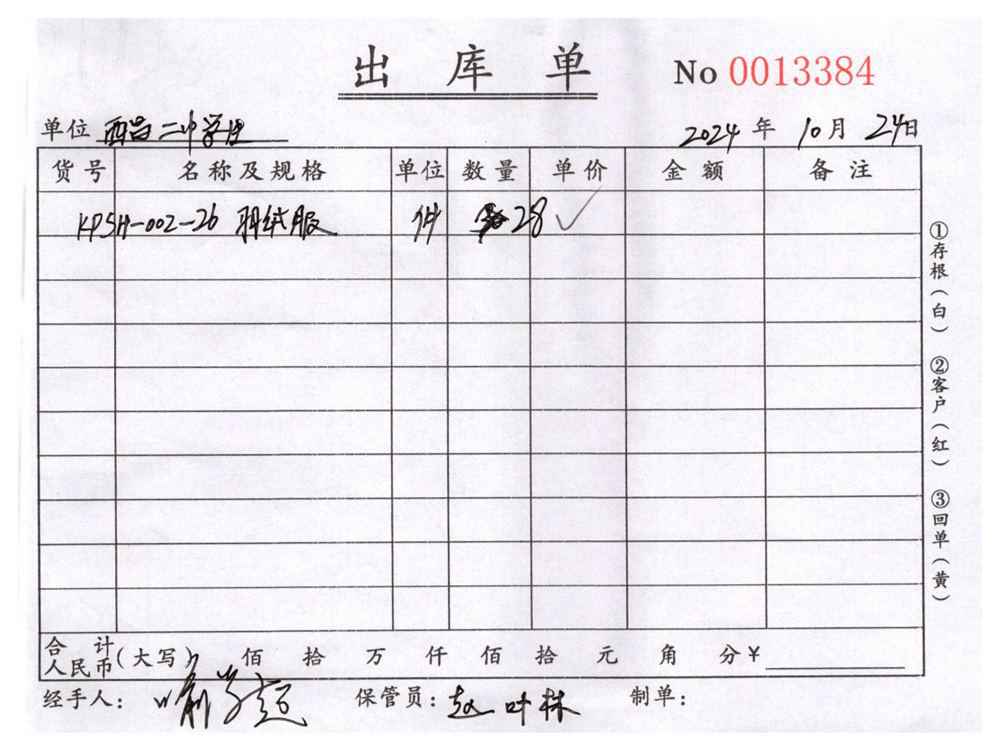 出库单 No 0013384
单位 西昌二中学校 2024年10月24日
货号 名称及规格 单位 数量 单价 金额 备注
KPSH-002-26 羽绒服 件 28 ✓
①存根(白)
②客户(红)
③回单(黄)
合计人民币(大写) 佰 拾 万 仟 佰 拾 元 角 分¥
经手人: 保管员:赵叶林 制单: